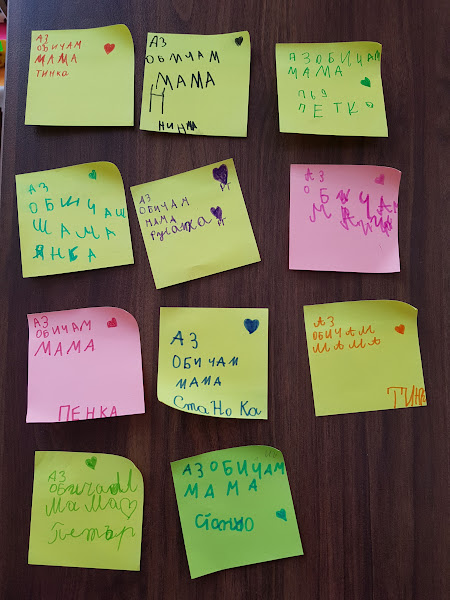 АЗ
ОБИЧАМ
МАМА
ТИНКА
АЗ
ОБИЧАМ
МАМА
Н
НИНА
АЗ ОБИЧАМ
МАМА
ПЕТКО
АЗ
ОБИЧАШ
ШАМА
ЯНКА
АЗ
ОБИЧАМ
МАМА
АЗ
ОБИЧАМ
МАМА
ПЕНКА
АЗ
ОБИЧАМ
МАМА
СтаНоКа
АЗ
ОБИЧАМ
МАМА
АЗ
ОБичаМ
МаМа
Петър
АЗ ОБИЧАМ
МАМА